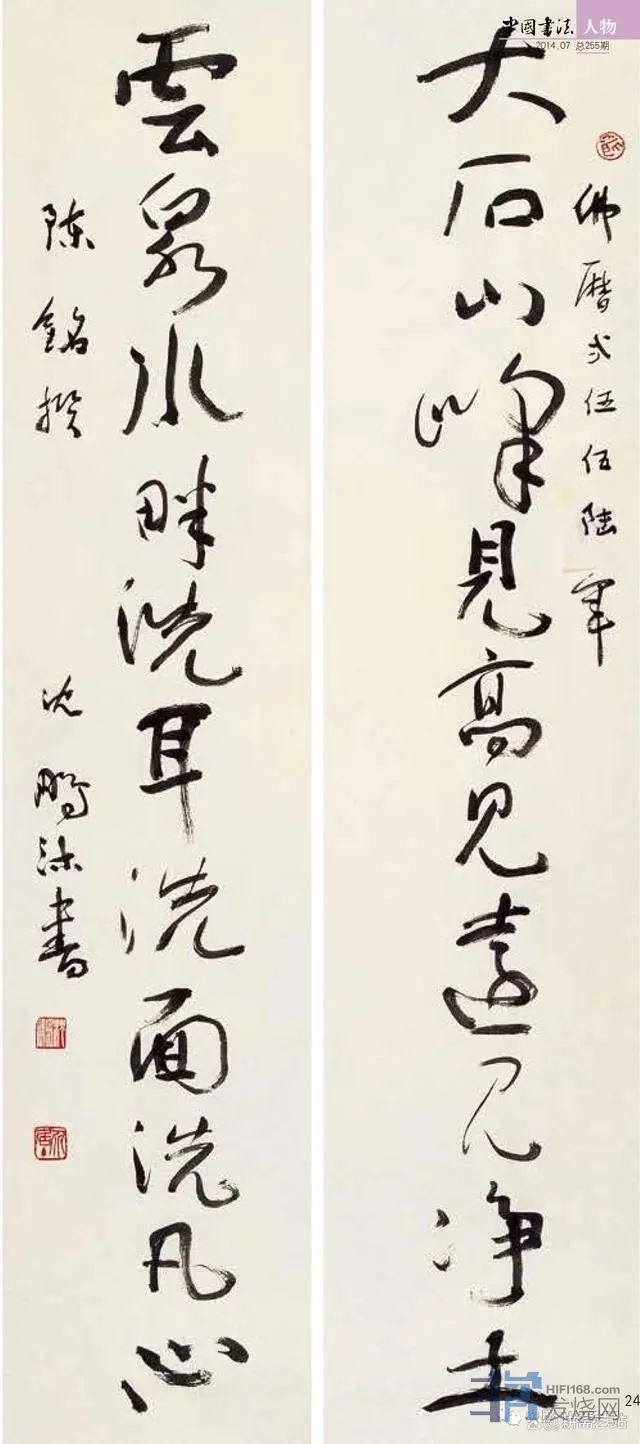 中國書法 人物
2014.07 总255期
大石山峰見高見遠見净土
佛曆弍伍伍陆年
雲泉水畔洗耳洗面洗凡心
陈銘撰
沈鹏沐書
HIFI168.com
发烧网
24